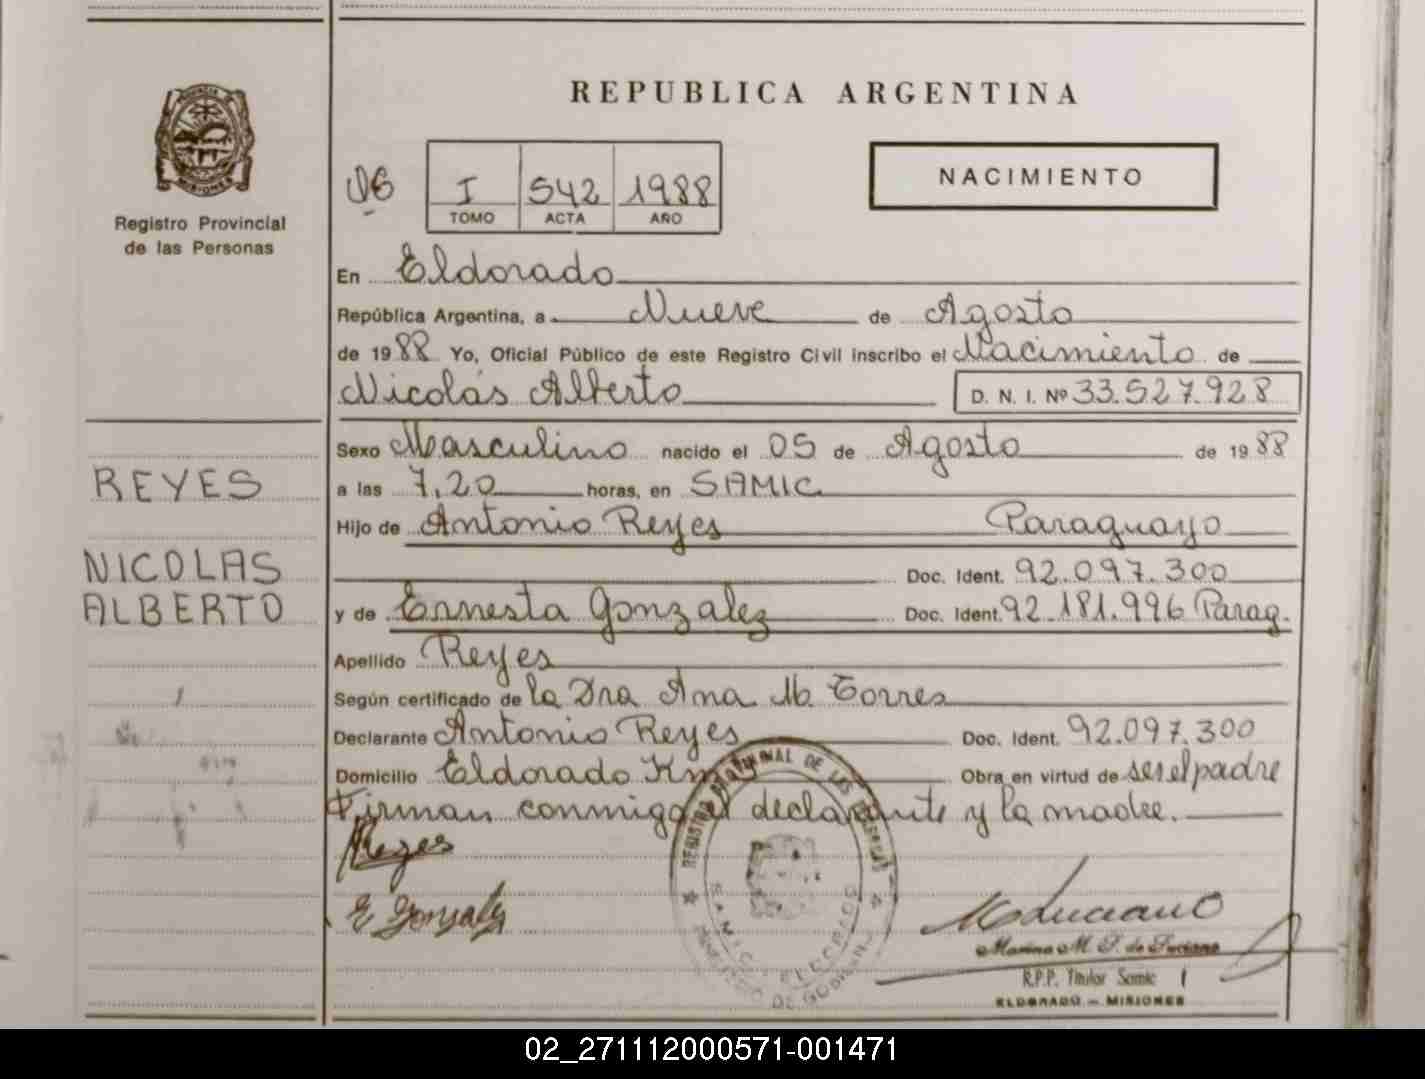 REPUBLICA ARGENTINA
PROVINCIA DE MISIONES
Registro Provincial
de las Personas
I 542 1988
TOMO ACTA AÑO
NACIMIENTO
En Eldorado
República Argentina, a Nueve de Agosto
de 1988 Yo, Oficial Público de este Registro Civil inscribo el Nacimiento de
Nicolás Alberto D. N. I. Nº 33.527.928
Sexo Masculino nacido el 05 de Agosto de 1988
a las 7,20 horas, en SAMIC
Hijo de Antonio Reyes Paraguayo
Doc. Ident. 92.097.300
y de Ernesta Gonzalez Doc. Ident. 92.181.996 Parag.
Apellido Reyes
Según certificado de la Dra Ana M. Torres
Declarante Antonio Reyes Doc. Ident. 92.097.300
Domicilio Eldorado Obra en virtud de ser el padre
Firman conmigo el declarante y la madre.
REYES
NICOLAS
ALBERTO
Reyes
E Gonzalez
REGISTRO PROVINCIAL DE LAS PERSONAS
SAMIC - ELDORADO
MINISTERIO DE GOBIERNO
M Luciano
Marina M. de Luciano
R.P.P. Titular Samic
ELDORADO - MISIONES
02_271112000571-001471